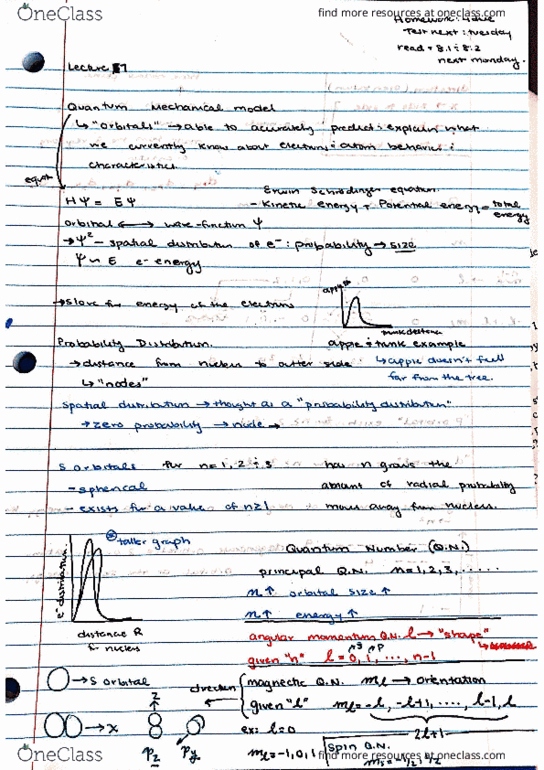 OneClass
find more resources at oneclass.com
Test next : tuesday
read + 8.1 : 8.2
next monday.
Lecture
Quantum Mechanical model
↳ "orbitals" → able to acurrately predict : explain what
we currently know about electrons : atom behavior :
characteristics.
HΨ = EΨ
Erwin Schrodinger equation.
- Kinetic energy + Potential energy = total energy
orbital ←→ wave-function Ψ
→ Ψ² - spatial distribution of e⁻ : probability → size
E e⁻ energy
→ slove for energy of the electrons
apple
trunk distance
Probability Distribution.
apple : trunk example
→ distance from nucleus to outer side
↳ apple doesn't fall
far from the tree.
↳ "nodes"
spatial distribution → thought as a "probability distribution"
→ zero probability → node →
s orbitals for n=1, 2 : 3
has n grows the
- spherical
amount of radial probability
- exists for a value of n≥1
moves away from nucleus.
taller graph
e⁻ distribution.
distance R
nucleus
Quantum Number (Q.N.)
principal Q.N. n=1,2,3,......
n↑ orbital size ↑
n↑ energy ↑
angular momentum Q.N. l → "shape"
given "n" l = 0, 1, ..., n-1
s p
→ s orbital
direction
magnectic Q.N. ml → orientation
given "l" ml = -l, -l+1, ..., l-1, l
2l+1
→ x
z
Pz
Py
ex: l=0
ml = -1, 0, 1
Spin Q.N.
OneClass
find more resources at oneclass.com